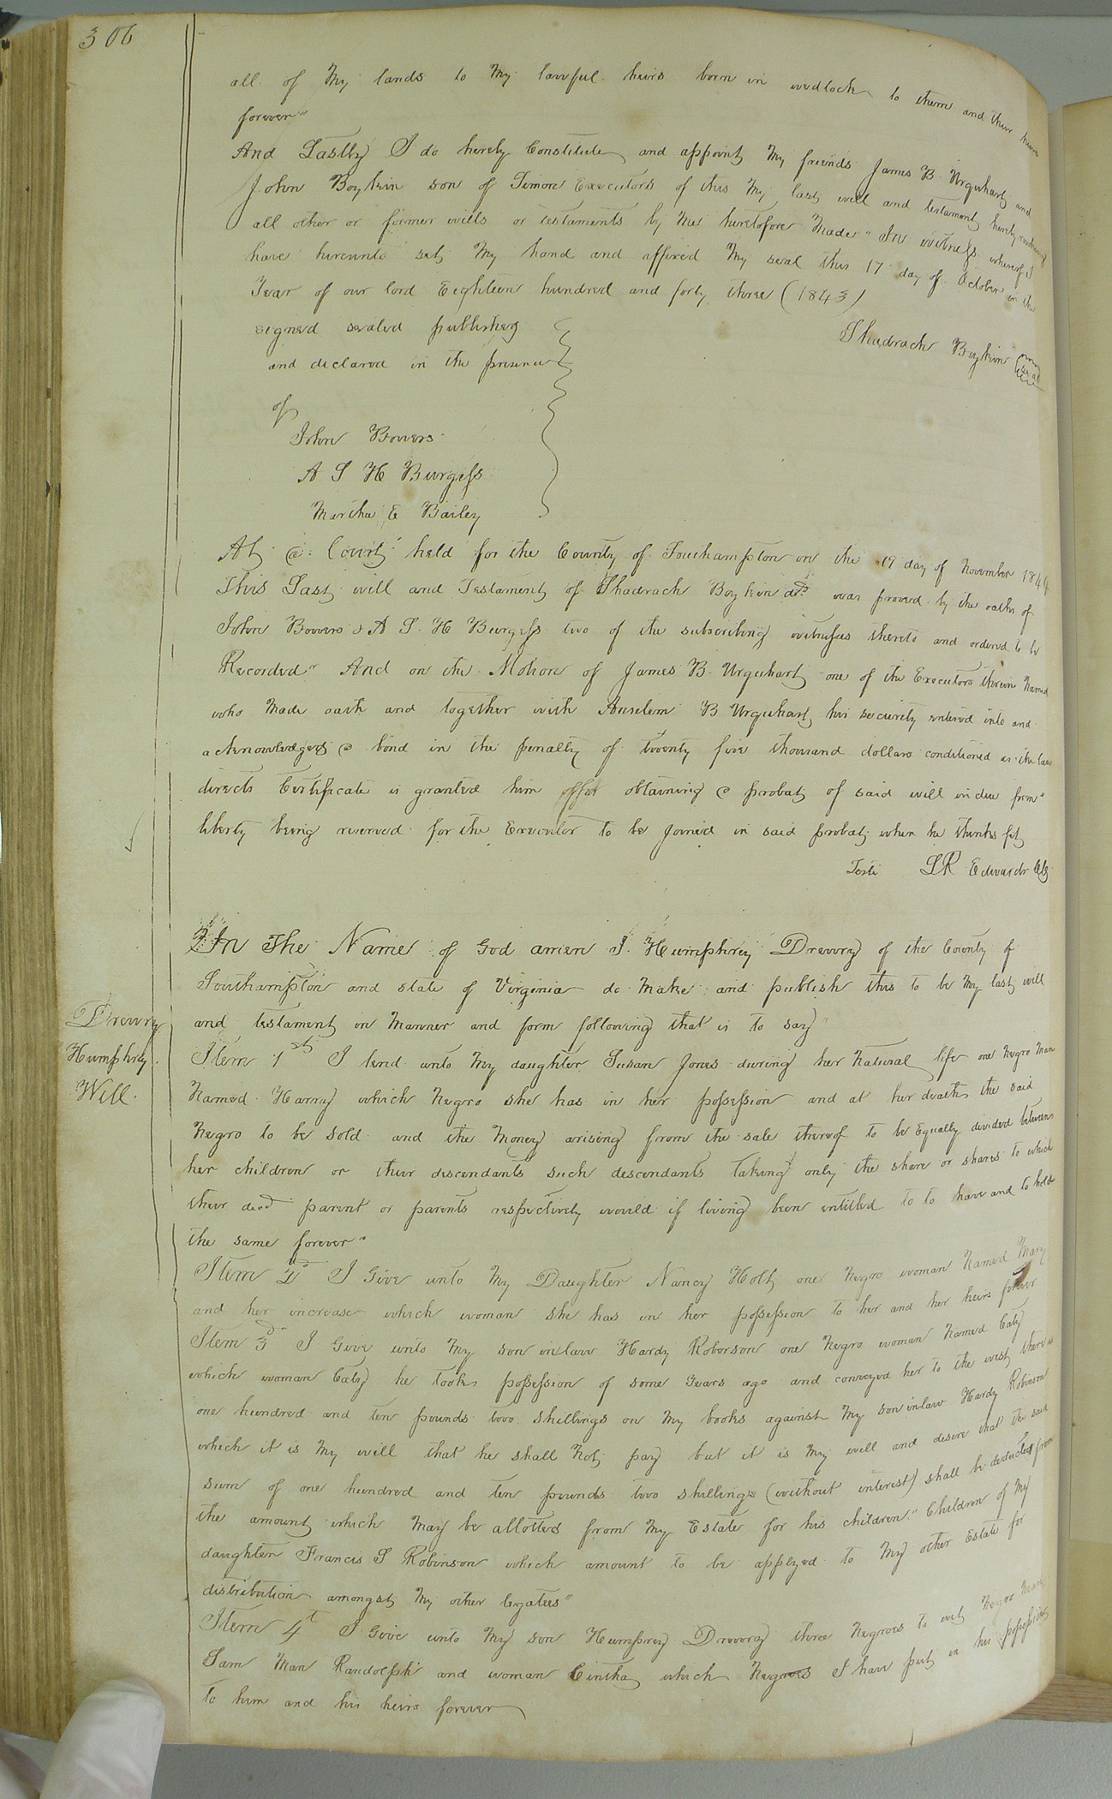 306
all of My lands to My lawful heirs born in wedlock to them and their heirs
forever"
And Lastly I do hereby Constitute and appoint My friends James B. Urquhart and
John Boykin son of Simon Executors of this My last will and testament hereby revoking
all other or former wills or testaments by Me heretofore Made" In witness whereof I
have hereunto set My hand and affixed My seal this 17 day of October in the
Year of our lord Eighteen hundred and forty three (1843)
Shadrach Boykin seal
signed sealed published
and declared in the presence
of
John Bowers
A S H Burgess
Martha E Bailey
At a Court held for the County of Southampton on the 19 day of November 1844
This Last will and Testament of Shadrach Boykin decd was proved by the oaths of
John Bowers & A S. H Burgess two of the subscribing witnesses thereto and ordered to be
Recorded" And on the Motion of James B Urquhart one of the Executors therein Named
who Made oath and together with Anselem B Urquhart his security entered into and
acknowledged a bond in the penalty of twenty five thousand dollars conditioned as the law
directs Certificate is granted him for obtaining a probat of said will in due form"
liberty being reserved for the Executor to be joined in said probat when he thinks fit
Teste L R Edwards Clk
In The Name of God amen I Humphrey Drewry of the County of
Southampton and state of Virginia do Make and publish this to be My last will
and testament in Manner and form following that is to say"
Drewry
Humphrey
Will.
Item 1st I lend unto My daughter Susan Jones during her Natural life one Negro Man
Named Harry which Negro she has in her possession and at her death the said
Negro to be sold and the Money arising from the sale thereof to be Equally divided between
her children or their descendants such descendants taking only the share or shares to which
their decd parent or parents respectively would if living been entitled to to have and to hold
the same forever"
Item 2d I Give unto My Daughter Nancy Holt one Negro woman Named Mary
and her increase which woman she has in her possession to her and her heirs forever
Item 3d I Give unto My son in law Hardy Roberson one Negro woman Named Caty
which woman Caty he took possession of some Years ago and conveyed her to the west there is
one hundred and ten pounds two shillings on My books against My son in law Hardy Robinson
which it is My will that he shall Not pay but it is My will and desire that the said
sum of one hundred and ten pounds two shillings (without interest) shall be deducted from
the amount which May be allotted from My Estate for his children" Children of My
daughter Francis S Robinson which amount to be applyed to My other Estate for
distribution amongst My other legatees"
Item 4t I Give unto My son Humprey Drewry three Negroes to wit Negro Man
Sam Man Randolph and woman Cintha which Negroes I have put in his possession
to him and his heirs forever